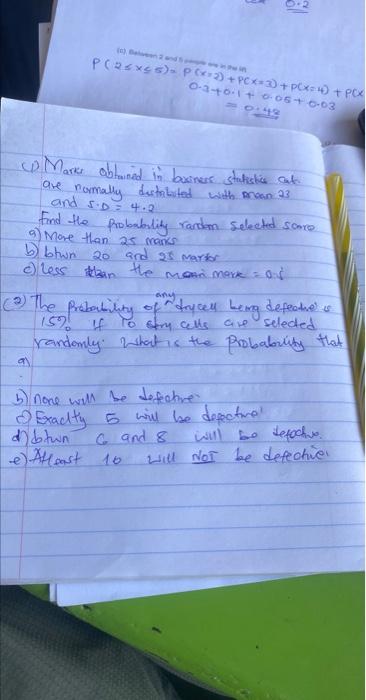 0.2
(c) Between 2 and 5 people are in the lift
P(2≤x≤5)= P(x=2)+P(x=3)+P(x=4)+P(x
0.3+0.1+0.05+0.03
= 0.48
(1) Marks obtained in business statistics cat
are normally distributed with mean 23
and S.D = 4.2
Find the probability random selected score
a) More than 25 marks
b) btwn 20 and 25 marks
c) Less than the mean mark = 0.5
(2) The Probability of any drycell being defective is
15% If 10 dry cells are selected
randomly. What is the Probability that
a)
b) none will be defective.
c) Exactly 5 will be defective
d) btwn 6 and 8 will be defective.
e) Atleast 10 will NOT be defective.